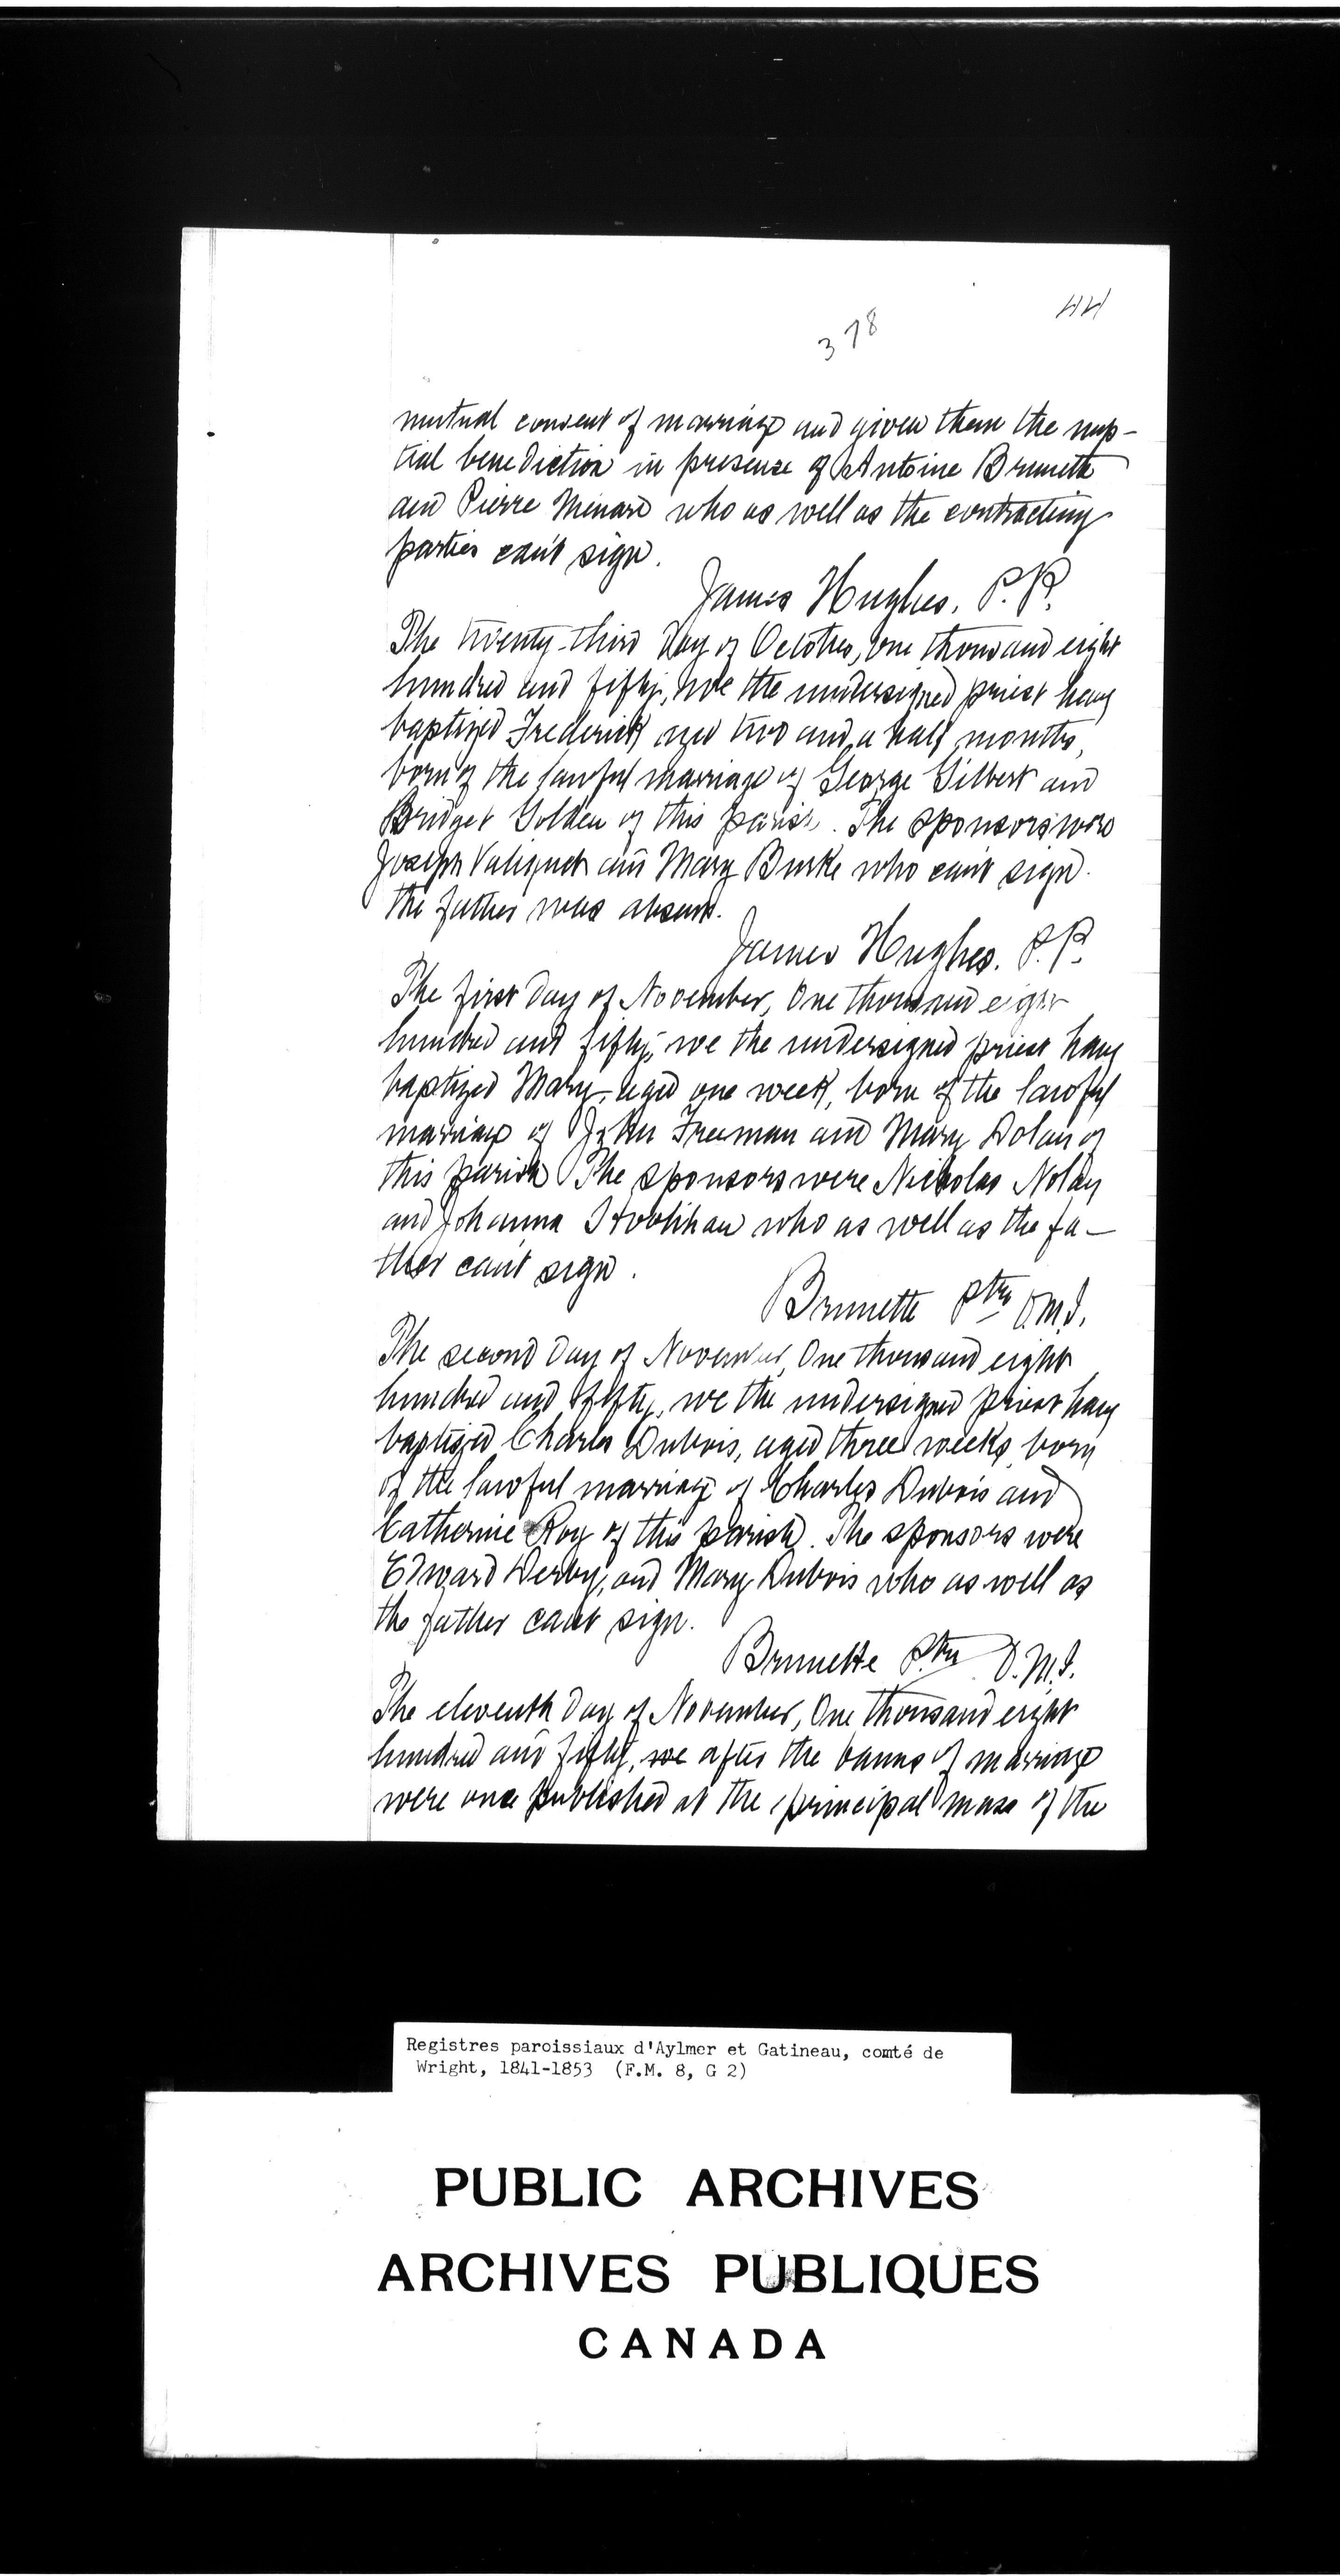 44
378
mutual consent of marriage and given them the nup-
tial benediction in presence of Antoine Brunette
and Pierre Menard who as well as the contracting
parties can't sign.
James Hughes. P.P.
The twenty-third day of October, one thousand eight
hundred and fifty, we the undersigned priest have
baptized Frederick aged two and a half months,
born of the lawful marriage of George Gilbert and
Bridget Golden of this parish. The sponsors were
Joseph Valiquet and Mary Burke who can't sign.
the father was absent.
James Hughes. P.P.
The first day of November, One thousand eight
hundred and fifty, we the undersigned priest have
baptized Mary, aged one week, born of the lawful
marriage of John Freeman and Mary Dolan of
this parish. The sponsors were Nicholas Nolan
and Johanna Hoolihan who as well as the fa-
ther can't sign.
Brunette Ptre O.M.I.
The second day of November, One thousand eight
hundred and fifty, we the undersigned priest have
baptized Charles Dubois, aged three weeks, born
of the lawful marriage of Charles Dubois and
Catherine Roy of this parish. The sponsors were
Edward Derby, and Mary Dubois who as well as
the father can't sign.
Brunette Ptre O.M.I.
The eleventh day of November, One thousand eight
hundred and fifty, we after the banns of marriage
were once published at the principal mass of the
Registres paroissiaux d'Aylmer et Gatineau, comté de
Wright, 1841-1853 (F.M. 8, G 2)
PUBLIC ARCHIVES
ARCHIVES PUBLIQUES
CANADA